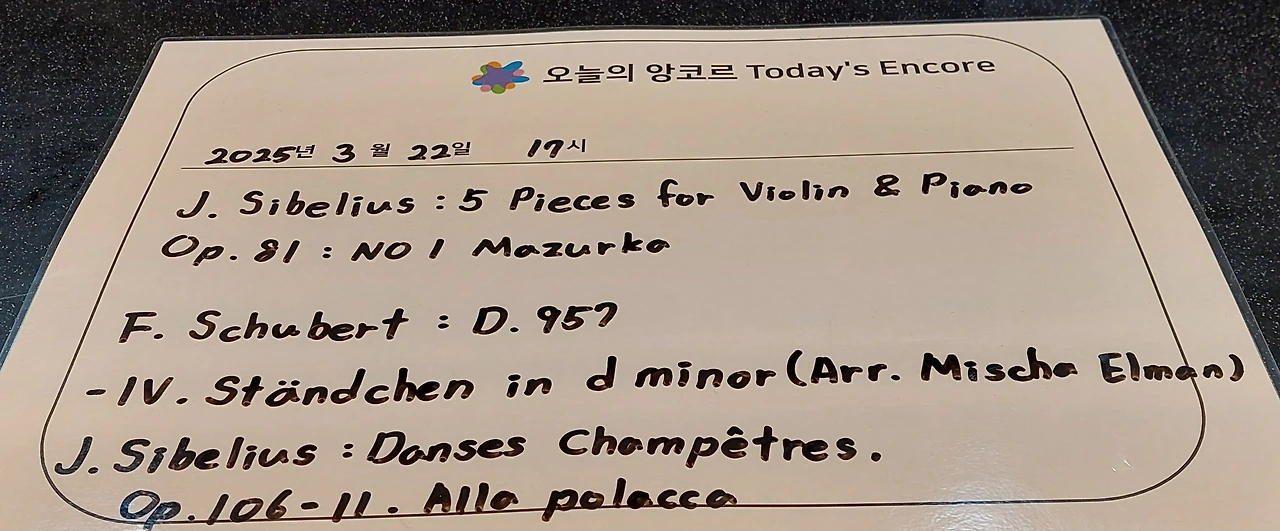 오늘의 앙코르 Today's Encore
2025년 3월 22일 17시
J. Sibelius : 5 Pieces for Violin & Piano
Op. 81 : NO 1 Mazurka
F. Schubert : D. 957
- IV. Ständchen in d minor (Arr. Mischa Elman)
J. Sibelius : Danses Champêtres.
Op. 106 - II. Alla polacca